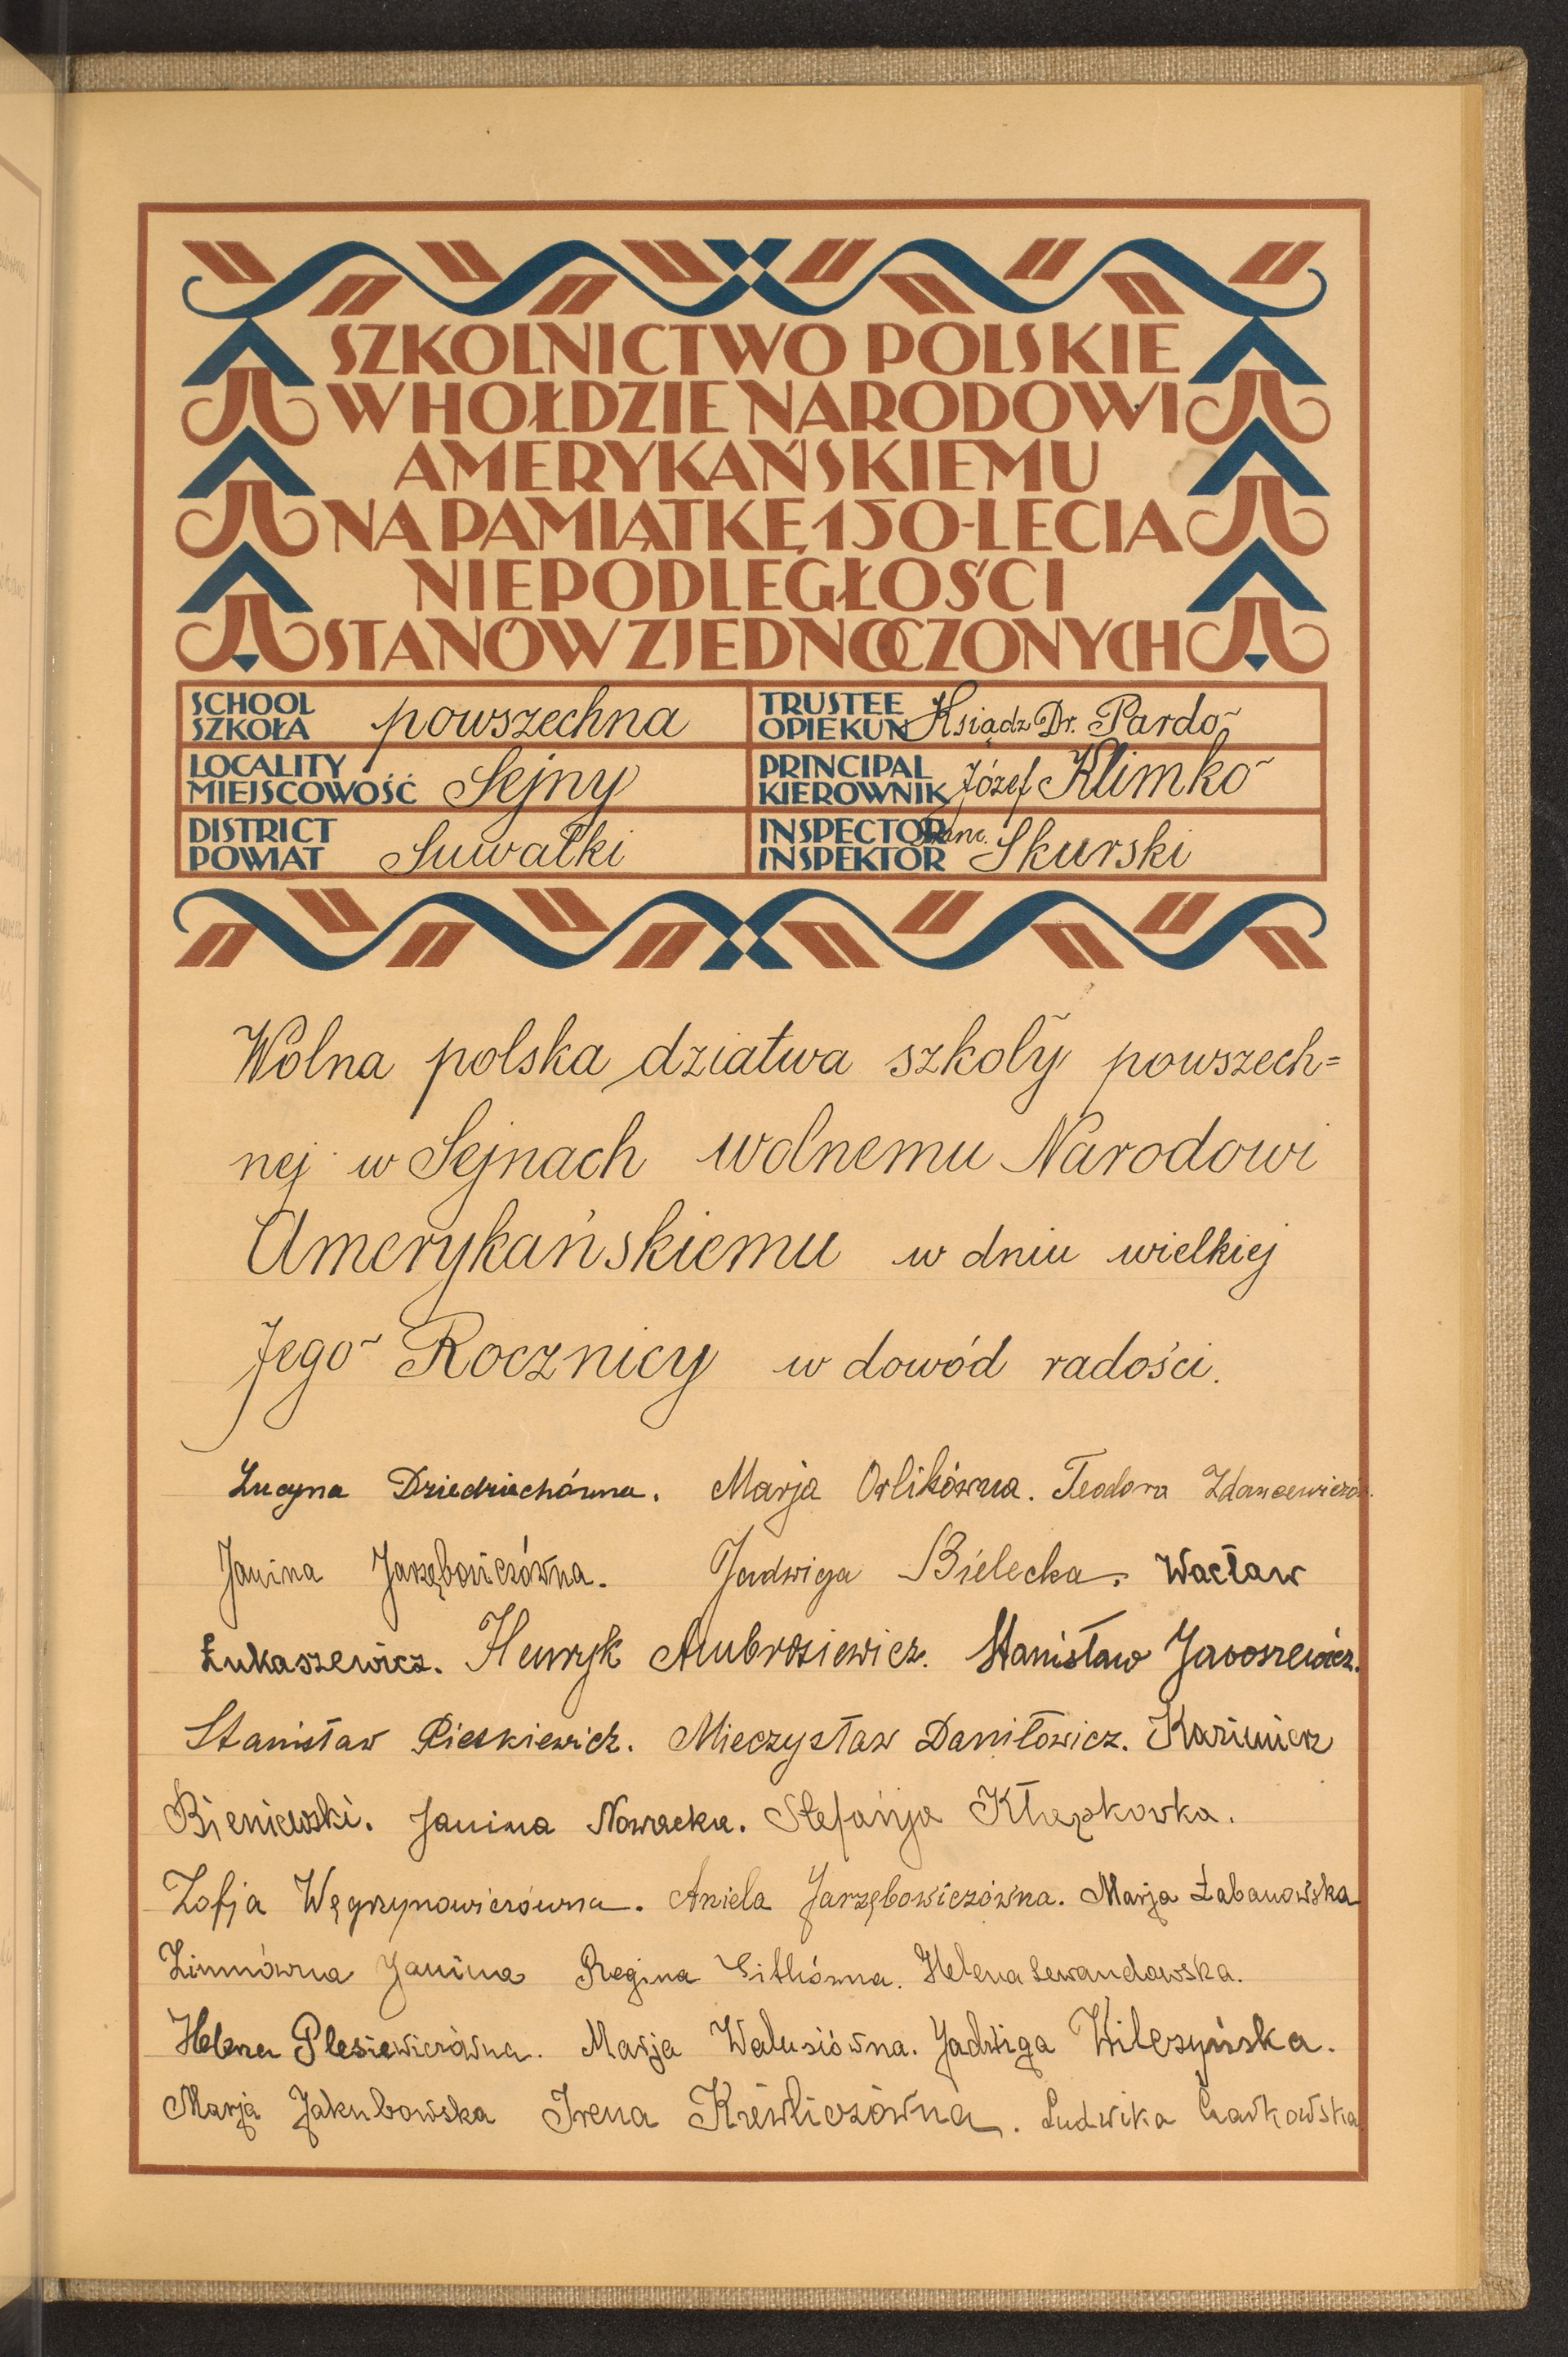 SZKOLNICTWO POLSKIE
W HOŁDZIE NARODOWI
AMERYKAŃSKIEMU
NA PAMIĄTKĘ 150-LECIA
NIEPODLEGŁOŚCI
STANÓW ZJEDNOCZONYCH
SCHOOL
SZKOŁA powszechna
TRUSTEE
OPIEKUN Ksiądz Dr. Pardo
LOCALITY
MIEJSCOWOŚĆ Sejny
PRINCIPAL
KIEROWNIK Józef Klimko
DISTRICT
POWIAT Suwałki
INSPECTOR
INSPEKTOR Skurski
Wolna polska dziatwa szkoły powszech=
nej w Sejnach wolnemu Narodowi
Amerykańskiemu w dniu wielkiej
Jego Rocznicy w dowód radości.
Lucyna Dziedziuchówna. Marja Orlikówna. Teodora
Janina Jarzębowiczówna. Jadwiga Bielecka. Wacław
Łukaszewicz. Henryk Ambrosiewicz. Stanisław Jaroszewicz.
Stanisław Pieskiewicz. Mieczysław Daniłowicz. Kazimierz
Bieniewski. Janina Nowacka. Stefanja
Zofja Węgrzynowiczówna. Aniela Jarzębowiczówna. Marja Łabanowska
Zimnówna Janina Regina Helena Lewandowska.
Helena Plesiewiczówna. Marja Walusiówna. Jadwiga Wilczyńska.
Marja Jakubowska Irena Krewliczówna. Ludwika